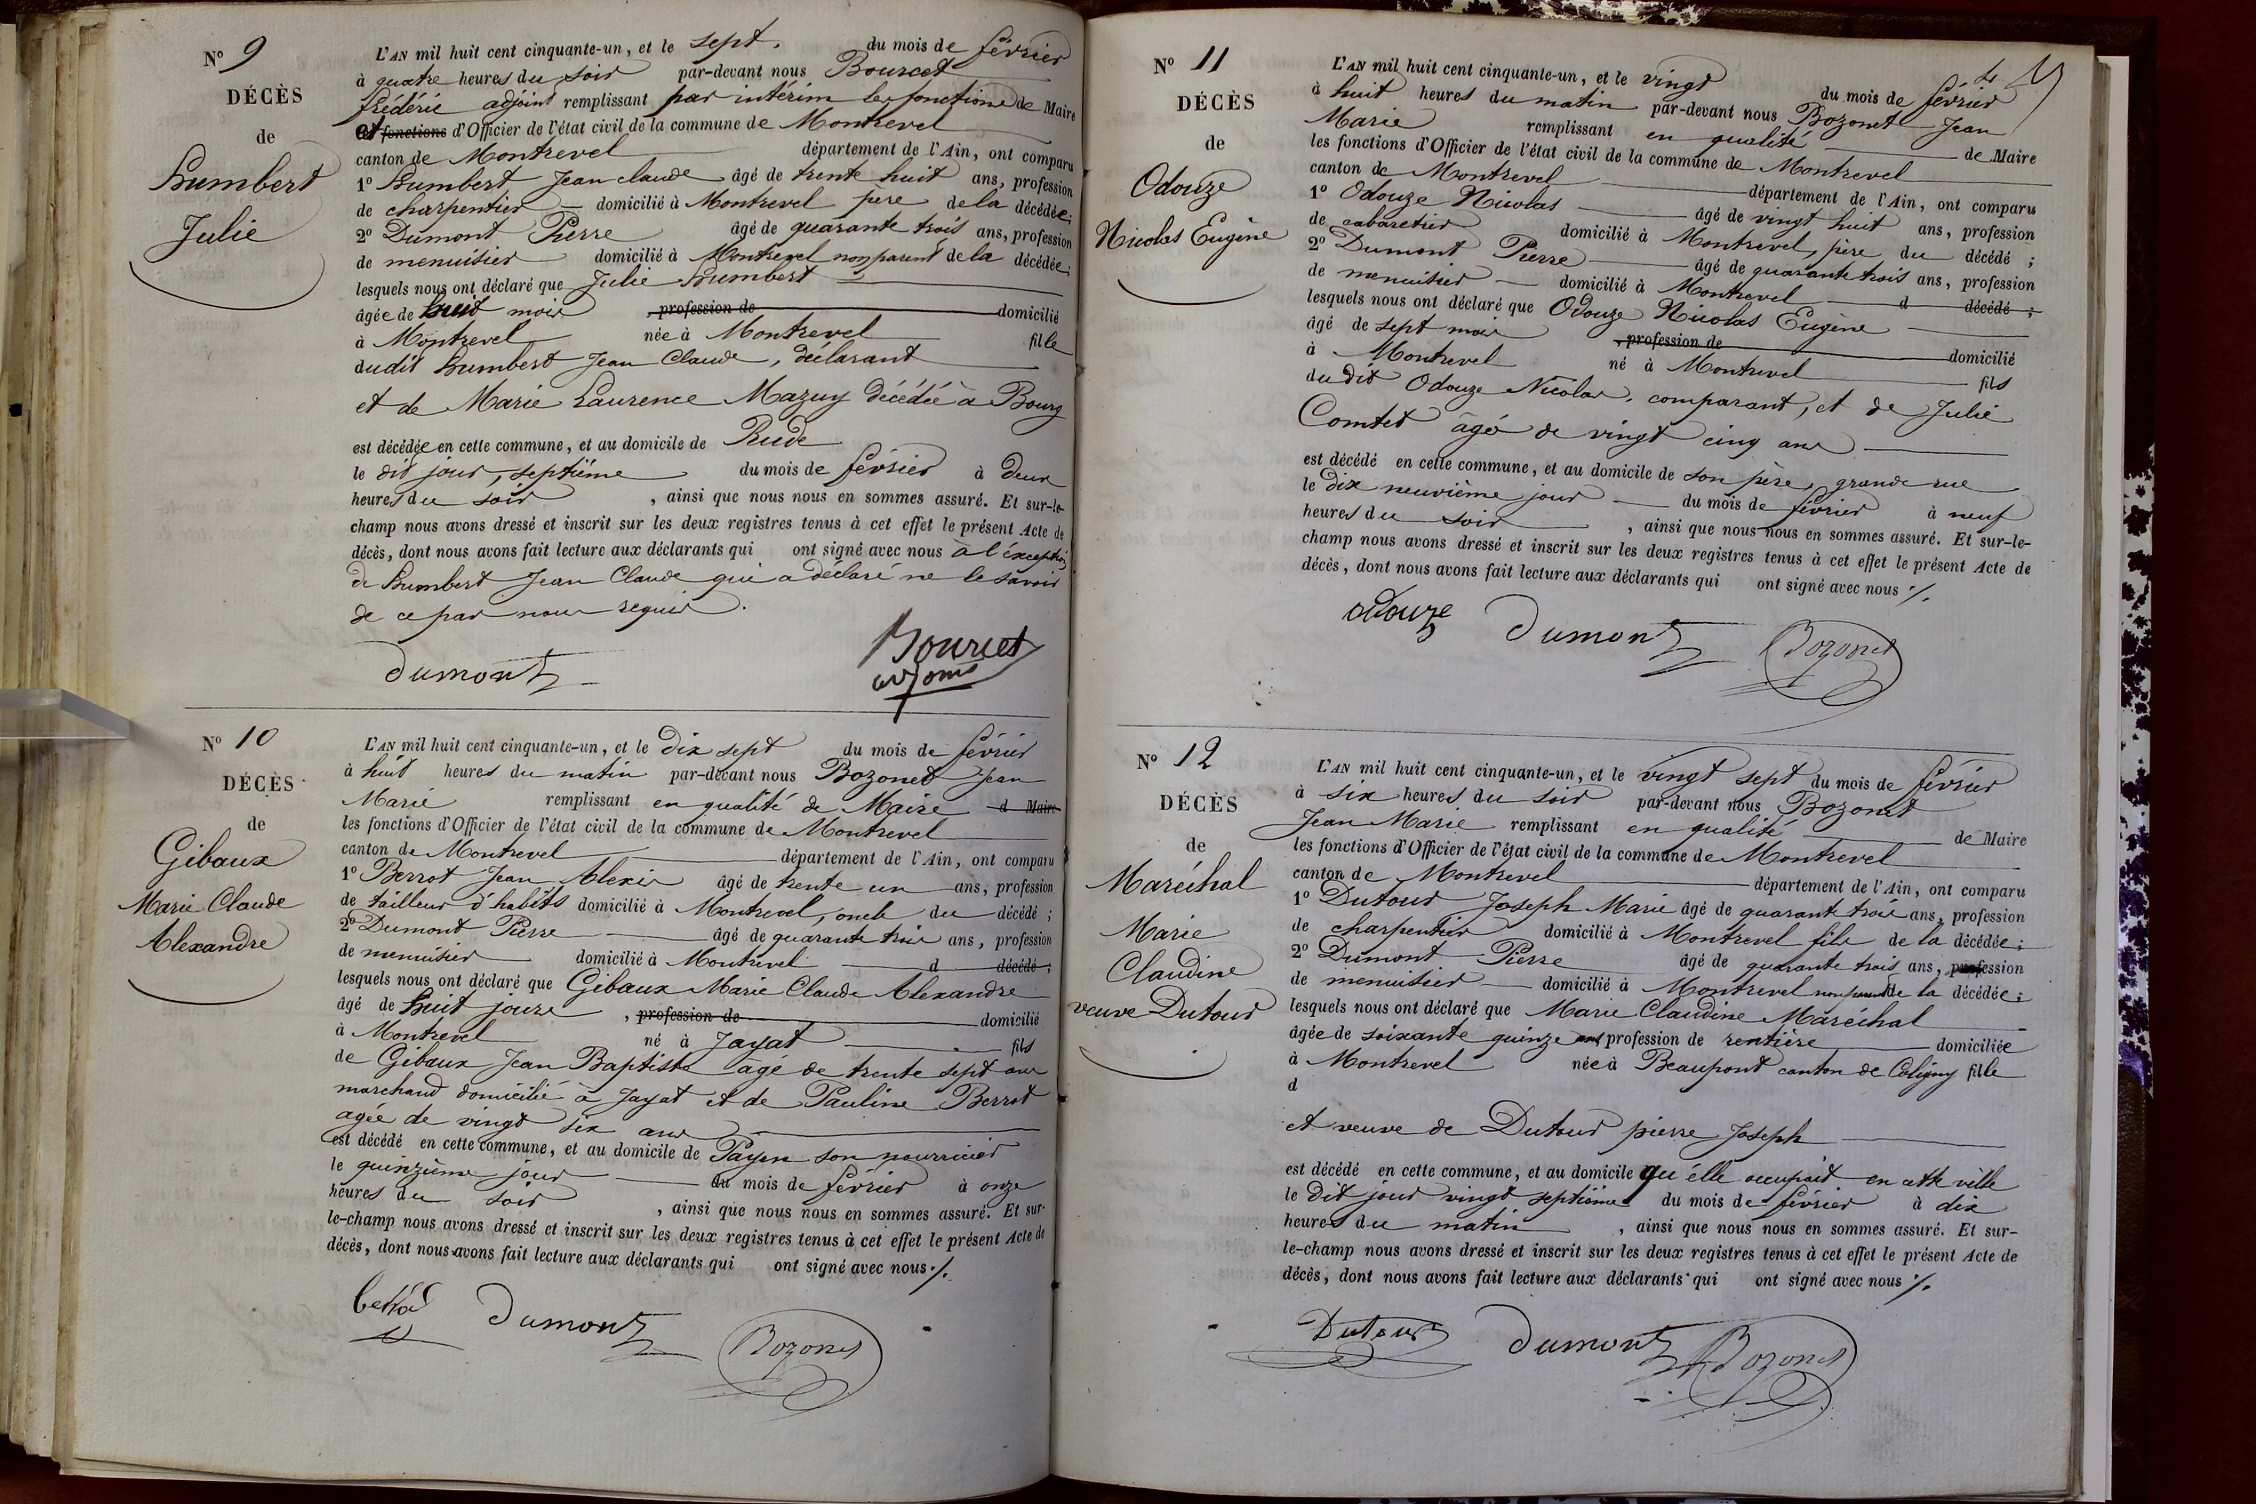 N° 9
DÉCÈS
de
Humbert
Julie
L'AN mil huit cent cinquante-un, et le sept. du mois de février
à quatre heures du soir par-devant nous Bourcet
frédéric adjoint remplissant par intérim les fonctions de Maire
et fonctions d'Officier de l'état civil de la commune de Montrevel
canton de Montrevel département de l'Ain, ont comparu
1° Humbert Jean claude âgé de trente huit ans, profession
de charpentier domicilié à Montrevel père de la décédée;
2° Dumont Pierre âgé de quarante trois ans, profession
de menuisier domicilié à Montrevel non parent de la décédée;
lesquels nous ont déclaré que Julie Humbert
âgée de huit mois , profession de domicilié
à Montrevel née à Montrevel fille
dudit Humbert Jean Claude, déclarant
et de Marie Laurence Mazuy décédée à Bourg
est décédée en cette commune, et au domicile de Rude
le dit jour, septième du mois de février à deux
heures du soir , ainsi que nous nous en sommes assuré. Et sur-le-
champ nous avons dressé et inscrit sur les deux registres tenus à cet effet le présent Acte de
décès, dont nous avons fait lecture aux déclarants qui ont signé avec nous à l'exception
de Humbert Jean Claude qui a déclaré ne le savoir
de ce par nous requis.
Dumont
Bourcet
adjoint
N° 10
DÉCÈS
de
Gibaux
Marie Claude
Alexandre
L'AN mil huit cent cinquante-un, et le dix sept du mois de février
à huit heures du matin par-devant nous Bozonet Jean
Marie remplissant en qualité de Maire d Maire
les fonctions d'Officier de l'état civil de la commune de Montrevel
canton de Montrevel département de l'Ain, ont comparu
1° Berrot Jean Alexis âgé de trente un ans, profession
de tailleur d'habits domicilié à Montrevel, oncle du décédé;
2° Dumont Pierre âgé de quarante trois ans, profession
de menuisier domicilié à Montrevel d décédé;
lesquels nous ont déclaré que Gibaux Marie Claude Alexandre
âgé de huit jours , profession de domicilié
à Montrevel né à Jayat fils
de Gibaux Jean Baptiste âgé de trente sept ans
marchand domicilié à Jayat et de Pauline Berrot
agée de vingt six ans
est décédé en cette commune, et au domicile de Payen son nourricier
le quinzième jour du mois de février à onze
heures du soir , ainsi que nous nous en sommes assuré. Et sur-
le-champ nous avons dressé et inscrit sur les deux registres tenus à cet effet le présent Acte de
décès, dont nous avons fait lecture aux déclarants qui ont signé avec nous ./.
Dumont
Bozonet
N° 11
DÉCÈS
de
Odouze
Nicolas Eugène
L'AN mil huit cent cinquante-un, et le vingt du mois de février
à huit heures du matin par-devant nous Bozonet Jean
Marie remplissant en qualité de Maire
les fonctions d'Officier de l'état civil de la commune de Montrevel
canton de Montrevel département de l'Ain, ont comparu
1° Odouze Nicolas âgé de vingt huit ans, profession
de cabaretier domicilié à Montrevel, père du décédé;
2° Dumont Pierre âgé de quarante trois ans, profession
de menuisier domicilié à Montrevel d décédé;
lesquels nous ont déclaré que Odouze Nicolas Eugène
âgé de sept mois , profession de domicilié
à Montrevel né à Montrevel fils
du dit Odouze Nicolas, comparant, et de Julie
Comtet âgée de vingt cinq ans
est décédé en cette commune, et au domicile de son père, grande rue
le dix neuvième jour du mois de février à neuf
heures du soir , ainsi que nous nous en sommes assuré. Et sur-le-
champ nous avons dressé et inscrit sur les deux registres tenus à cet effet le présent Acte de
décès, dont nous avons fait lecture aux déclarants qui ont signé avec nous ./.
odouze
Dumont
Bozonet
N° 12
DÉCÈS
de
Maréchal
Marie
Claudine
veuve Dutour
L'AN mil huit cent cinquante-un, et le vingt sept du mois de février
à six heures du soir par-devant nous Bozonet
Jean Marie remplissant en qualité de Maire
les fonctions d'Officier de l'état civil de la commune de Montrevel
canton de Montrevel département de l'Ain, ont comparu
1° Dutour Joseph Marie âgé de quarante trois ans, profession
de charpentier domicilié à Montrevel fils de la décédée;
2° Dumont Pierre âgé de quarante trois ans, profession
de menuisier domicilié à Montrevel non parent de la décédée;
lesquels nous ont déclaré que Marie Claudine Maréchal
âgée de soixante quinze ans profession de rentière domiciliée
à Montrevel née à Beaupont canton de Coligny fille
d
et veuve de Dutour pierre Joseph
est décédé en cette commune, et au domicile qu'elle occupait en cette ville
le dit jour vingt septième du mois de février à dix
heures du matin , ainsi que nous nous en sommes assuré. Et sur-
le-champ nous avons dressé et inscrit sur les deux registres tenus à cet effet le présent Acte de
décès, dont nous avons fait lecture aux déclarants qui ont signé avec nous ./.
Dutour
Dumont
Bozonet